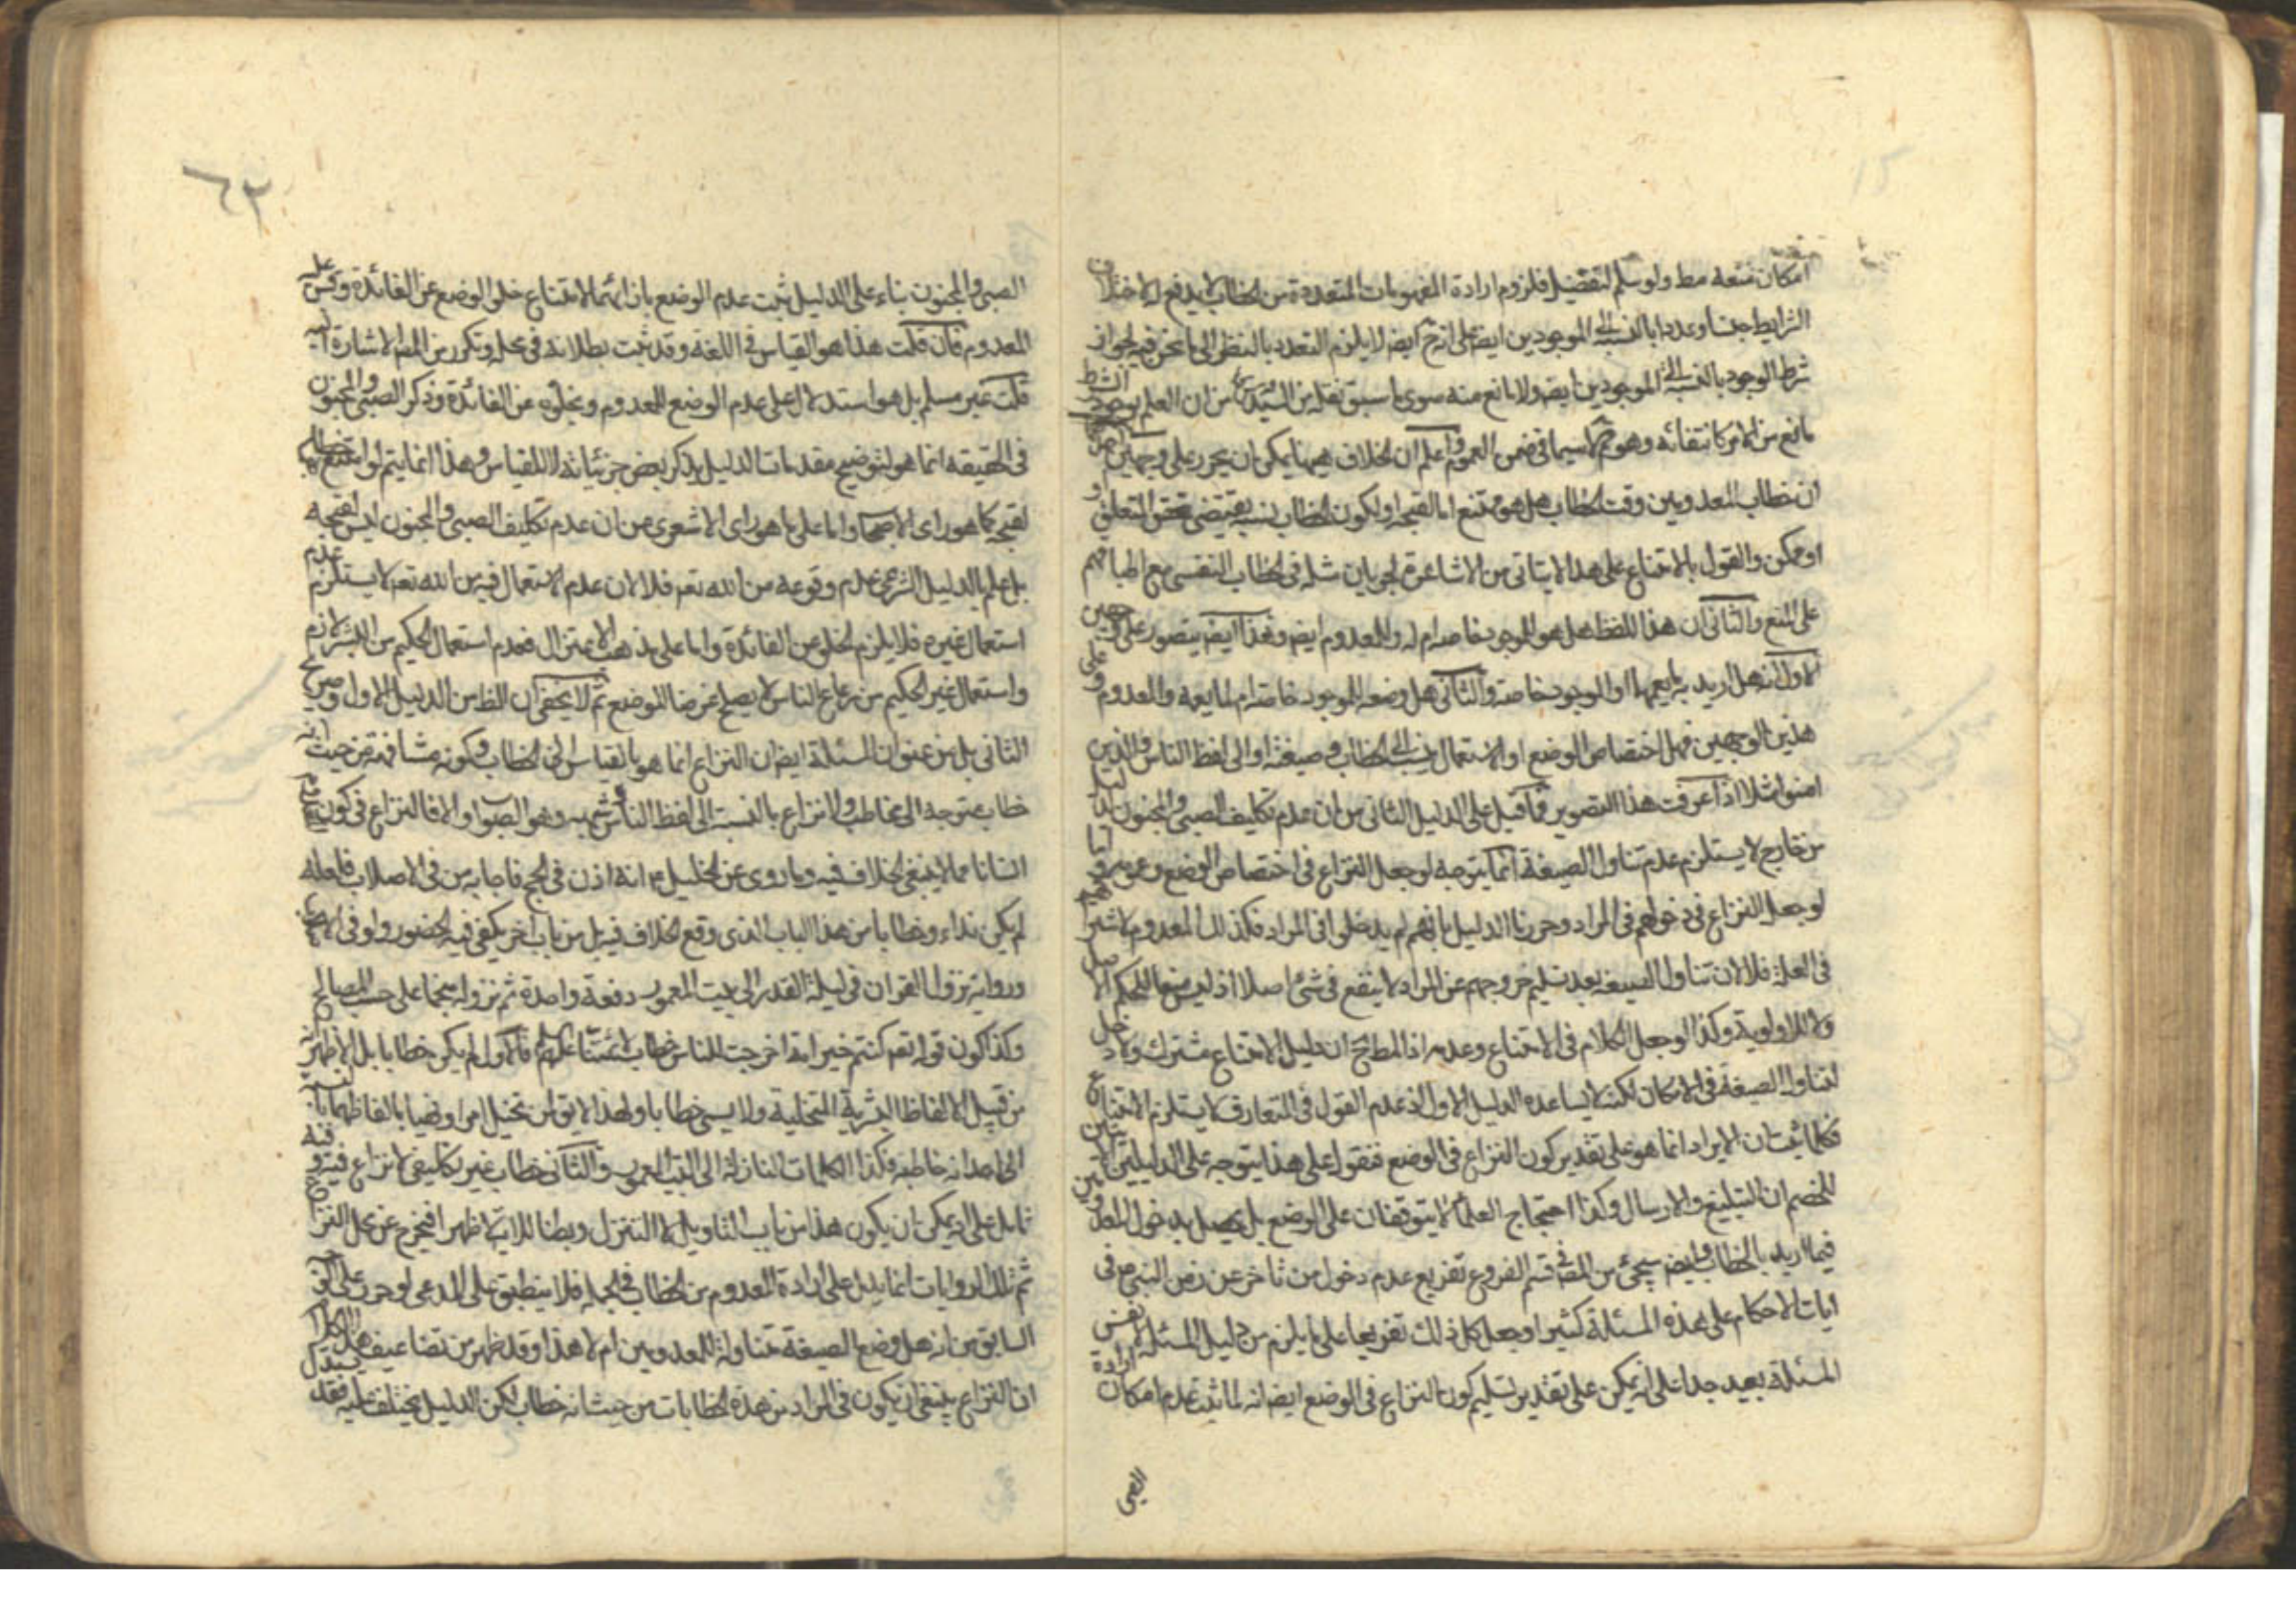 امكان منعه مط ولو سلم التفضيل فلزوم ارادة المفهومات المتعددة من الخطاب لا يدفع
الشرايط جنسا وعددا بالنسبة الى الموجودين ايضا على انه ايضا لا يلزم التعدد بالنظر الى ما نحن فيه لجواز
شرط الوجود بالنسبة الى الموجودين ايضا ولا مانع منه سوى ما سبق نقله من السيد من ان العلم بوجود الشرط
مانع من الامر كانتفائه وهو كما سيما في ضمن العموم واعلم ان الخلاف هيهنا يمكن ان يحرر على وجهين
ان خطاب المعدومين وقت الخطاب هل هو ممتنع اما لقبحه او لكون الخطاب نسبة يقتضى تحقق المتعلق
او ممكن والقول بالامتناع على هذا لا يتاتى من الاشاعرة لجريان مثله في الخطاب النفسى مع اطباقهم
على المنع والثاني ان هذا اللفظ هل هو للموجود خاصة ام له وللمعدوم ايضا وهذا ايضا يتصور على وجهين
الاول انه هل اريد به ما يعمهما او الموجود خاصة والثاني هل وضعه للموجود خاصة ام لما يعمه والمعدوم وعلى
هذين الوجهين فهل اختصاص الوضع او الاستعمال ينسب الى الخطاب وصيغته او الى لفظ الناس والذين
امنوا مثلا اذا عرفت هذا التصوير فما قيل على الدليل الثانى من ان عدم تكليف الصبى والمجنون
من خارج لا يستلزم عدم تناول الصيغة انما يتوجه لو جعل النزاع في اختصاص الوضع وعمومه واما
لو جعل النزاع في دخولهم في المراد وحررنا الدليل بانهم لم يدخلوا في المراد فكذلك المعدوم
في العلة فلا لان تناول الصيغة بعد تسليم خروجهم عن المراد لا ينفع في شئ اصلا اذ ليس
ولا للاولوية وكذا لو جعل الكلام في الامتناع وعدمه اذ المطلوح ان دليل الامتناع مشترك ولا دخل
لتناول الصيغة في الامكان لكنه لا يساعده الدليل الاول اذ عدم القول في المتعارف لا يستلزم الامتناع
فكلما ثبت ان الايراد انما هو على تقدير كون النزاع في الوضع فنقول على هذا يتوجه على الدليلين
للخصم ان التبليغ والارسال وكذا احتجاج العلماء لا يتوقفان على الوضع بل يحصل بدخول المعدومين
فيما اريد بالخطاب وايضا سيجئ من المصـ في قسم الفروع تفريع عدم دخول من تاخر عن زمن النبى ص في
ايات الاحكام على هذه المسئلة كثيرا وجعل كل ذلك تفريعا على ما يلزم من دليل المسئلة لا نفس
المسئلة بعيد جدا على انه يمكن على تقدير تسليم كون النزاع في الوضع ايضا انه لما ثبت عدم امكان ارادة
الصبى
٦٢
الصبى والمجنون بناء على الدليل ثبت عدم الوضع بازائهما لامتناع خلو الوضع عن الفائدة وقس على
المعدوم فان قلت هذا هو القياس في اللغة وقد ثبت بطلانه في محله وتكرر من المصـ الاشارة
قلت غير مسلم بل هو استدلال على عدم الوضع للمعدوم وبخلوه عن الفائدة وذكر الصبى والمجنون
في الحقيقة انما هو لتوضيح مقدمات الدليل بذكر بعض جزئياته لا للقياس وهذا انما يتم لو امتنع
لقبحه كما هو راى الاصحاب واما على ما هو راى الاشعرى من ان عدم تكليف الصبى والمجنون ليس لقبحه
بل علم بالدليل الشرعى عدم وقوعه من الله تعـ فلا لان عدم الاستعمال فيه من الله تعـ لا يستلزم عدم
استعمال غيره فلا يلزم الخلو عن الفائدة واما على مذهب الاعتزال فعدم استعمال الحكيم من البشر لازم
واستعمال غير الحكيم من رعاع الناس لا يصلح غرضا للوضع ثم لا يخفى ان الظ من الدليل الاول وصريح
الثانى بل من عنوان المسئلة ايضا ان النزاع انما هو بالقياس الى الخطاب وكونه مشافهة من حيث انه
خطاب متوجه الى مخاطب ولا نزاع بالنسبة الى لفظ الناس وشبهه وهو الصواب والا فالنزاع في كون
انسانا مما لا ينبغى الخلاف فيه وما روى عن الخليل ع انه اذن في الحج فاجابه من في الاصلاب فلعله
لم يكن نداء وخطابا من هذا الباب الذى وقع الخلاف فيه بل من باب اخر يكفى فيه الحضور ولو في
ورواية نزول القران في ليلة القدر الى البيت المعمور دفعة واحدة ثم نزوله منجما على حسب المصالح
وكذا كون قوله تعـ كنتم خير امة اخرجت للناس خطاب لائمتنا عليهم السلم فالاول لم يكن خطابا بل الاظهر انه
من قبيل الالفاظ البشرية المتخيلة ولا يسمى خطابا ولهذا لا يق لمن تخيل امرا ونهيا بالفاظهما
الى احد انه خاطبه فكذا الكلمات النازلة الى البيت المعمور والثانى خطاب غير تكليفى لا نزاع فيه
تامل على انه يمكن ان يكون هذا من باب التاويل لا التنزيل وبطنا للاية لا ظهرا فيخرج عن محل النزاع
ثم تلك الروايات انما يدل على ارادة المعدوم من الخطاب في الجملة فلا ينطبق على المدعى لو حرر على
السابق من انه هل وضع الصيغة متناولة للمعدومين ام لا هذا وقد ظهر من تضاعيف هذا الكلام
ان النزاع ينبغى ان يكون في المراد من هذه الخطابات من حيث انه خطاب لكن الدليل يختلف عليه فقد يستدل